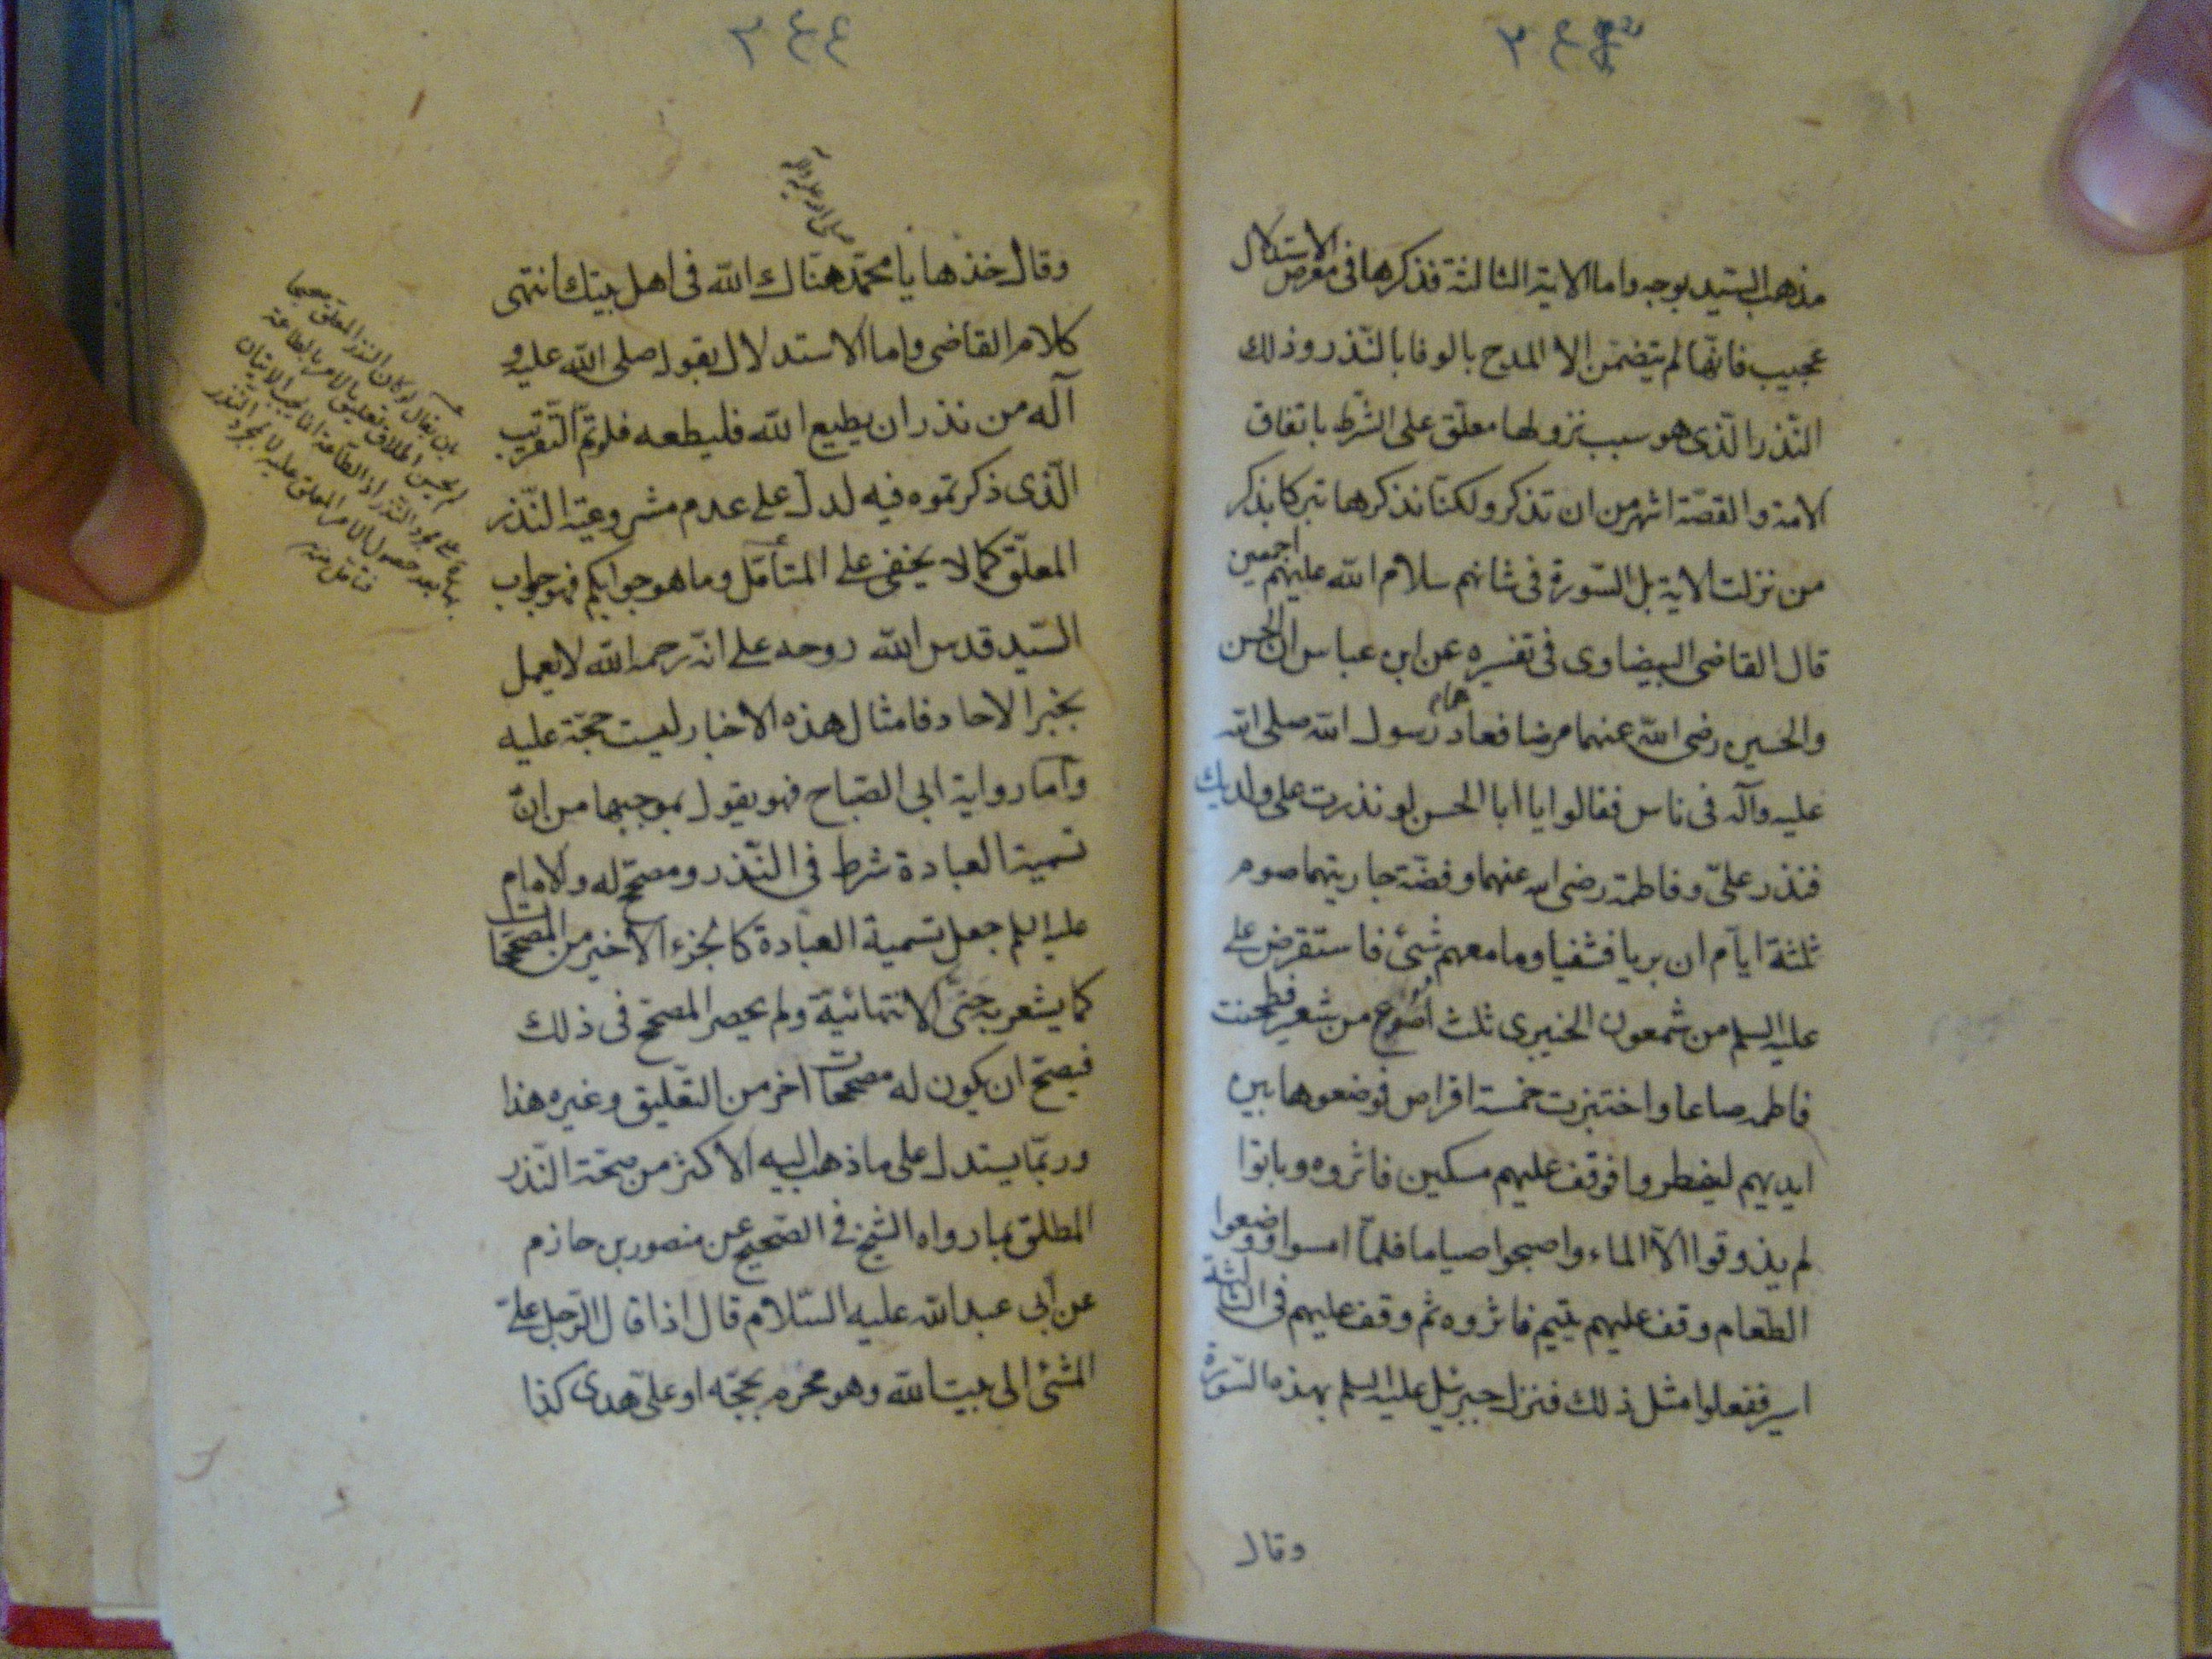 ٢٤٣
مذهب السيد بوجه واما الاية الثالثة فذكرها فى معرض الاستدلال
عجيب فانّها لم يتضمن الا المدح بالوفا بالنّذر وذلك
النّذر الّذى هو سبب نزولها معلّق على الشّرط باتفاق
الامة والقصّة اشهر من ان تذكر ولكنّا نذكرها تبركا بذكر
من نزلت الاية بل السّورة فى شانهم سلام الله عليهم اجمعين
قال القاضى البيضاوى فى تفسيره عن ابن عباس ان الحسن
والحسين رضى الله عنهما مرضا فعادهما رسول الله صلى الله
عليه وآله فى ناس فقالوا يا ابا الحسن لو نذرت على ولديك
فنذر علىّ وفاطمة رضى الله عنهما وفضّة جاريتهما صوم
ثلثة ايام ان بريا فشفيا وما معهم شئ فاستقرض على
عليه السلم من شمعون الخيبرى ثلث اصوع من شعير فطحنت
فاطمه صاعا واختبزت خمسة اقراص فوضعوها بين
ايديهم ليفطروا فوقف عليهم مسكين فاثروه وباتوا
لم يذوقوا الّا الماء واصبحوا صياما فلمّا امسوا ووضعوا
الطعام وقف عليهم يتيم فاثروه ثم وقف عليهم فى الثالثة
اسير ففعلوا مثل ذلك فنزل جبرئيل عليه السلم بهذه السّورة
وقال
٢٤٤
صلى الله عليه وآله
وقال خذها يا محمّد هنّاك الله فى اهل بيتك انتهى
كلام القاضى واما الاستدلال بقوله صلى الله عليه و
آله من نذر ان يطيع الله فليطعه فلو تمّ التّقريب
الّذى ذكرتموه فيه لدلّ على عدم مشروعيّة النّذر
المعلّق كما لا يخفى على المتأمّل وما هو جوابكم فهو جواب
السّيد قدس الله روحه على انّه رحمه الله لا يعمل
بخبر الاحاد فامثال هذه الاخبار ليست حجّة عليه
وامّا رواية ابى الصّباح فهو يقول بموجبها من انّ
تسمية العبادة شرط فى النّذر ومصحّح له والامام
عليه السلم جعل تسمية العبادة كالجزء الاخير من المصحّحات
كما يشعر به حتّى الانتهائيّة ولم يحصر المصحّح فى ذلك
فيصحّ ان يكون له مصحّحات اخر من التّعليق وغيره هذا
وربّما يستدل على ما ذهب اليه الاكثر من صحّة النّذر
المطلق بما رواه الشّيخ فى الصّحيح عن منصور بن حازم
عن أبى عبد الله عليه السّلام قال اذا قال الرّجل علىّ
المشئ الى بيت الله وهو محرم بحجّه او علىّ هدى كذا
بان يقال لو كان النذر المعلق صحيحا
لم يحسن اطلاق تعليق الامر بالطاعة
على مجرد النذر اذ الطّاعة انما يجب الاتيان
بها بعد حصول الامر المعلق عليه لا بمجرد النّذر
فتامّل منه